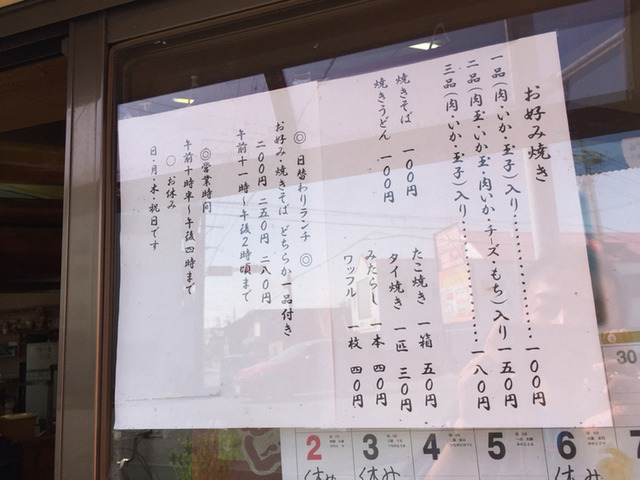 お好み焼き
一品(肉・いか・玉子)入り...............一〇〇円
二品(肉玉・いか玉・肉いか・チーズ・もち)入り一五〇円
三品(肉・いか・玉子)入り...............一八〇円
焼きそば 一〇〇円
焼きうどん 一〇〇円
たこ焼き 一箱 五〇円
タイ焼き 一匹 三〇円
みたらし 一本 四〇円
ワッフル 一枚 四〇円
◎ 日替わりランチ ◎
お好み・焼きそば どちらか一品付き
二〇〇円 二五〇円 二八〇円
午前十一時~午後2時頃まで
◎営業時間
午前十時半~午後四時まで
○ お休み
日・月・木・祝日です
30
2 3 4 5 6 7
休み 休み 休み